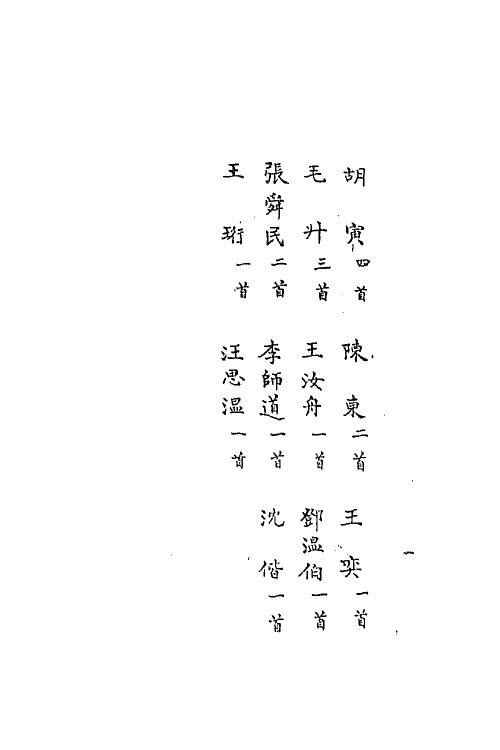 一
胡寅四首 陳東二首 王奕一首
毛廾三首 王汝舟一首 鄧溫伯一首
張舜民二首 李師道一首 沈偕一首
王珩一首 汪思溫一首